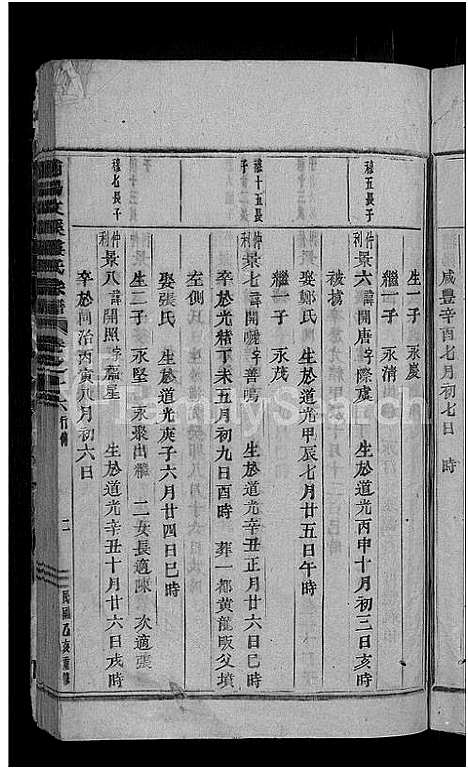 咸豐辛酉七月初七日 時
生一子 永慶
繼一子 永清
穆五長子
仲利景六諱開唐字際虞 生於道光丙申十月初三日亥時
被擄
娶鄭氏 生於道光甲辰七月廿五日午時
繼一子 永茂
穆十五長子
仲利景七諱開曬字善鳴 生於道光辛丑正月廿六日巳時
卒於光緒丁未五月初九日酉時 葬一都黃龍畈父墳
左側
娶張氏 生於道光庚子六月廿四日巳時
生二子 永堅 永聚出繼 二女長適陳 次適張
穆七長子
仲利景八諱開照字 星 生於道光辛丑十月廿六日戌時
卒於同治丙寅八月初六日
氏宗譜 卷之 六 行傳 二 民國乙亥重修
FamilySearch